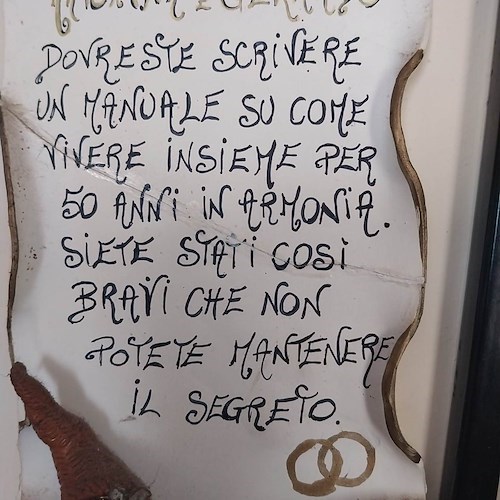 DOVRESTE SCRIVERE
UN MANUALE SU COME
VIVERE INSIEME PER
50 ANNI IN ARMONIA.
SIETE STATI COSÌ
BRAVI CHE NON
POTETE MANTENERE
IL SEGRETO.